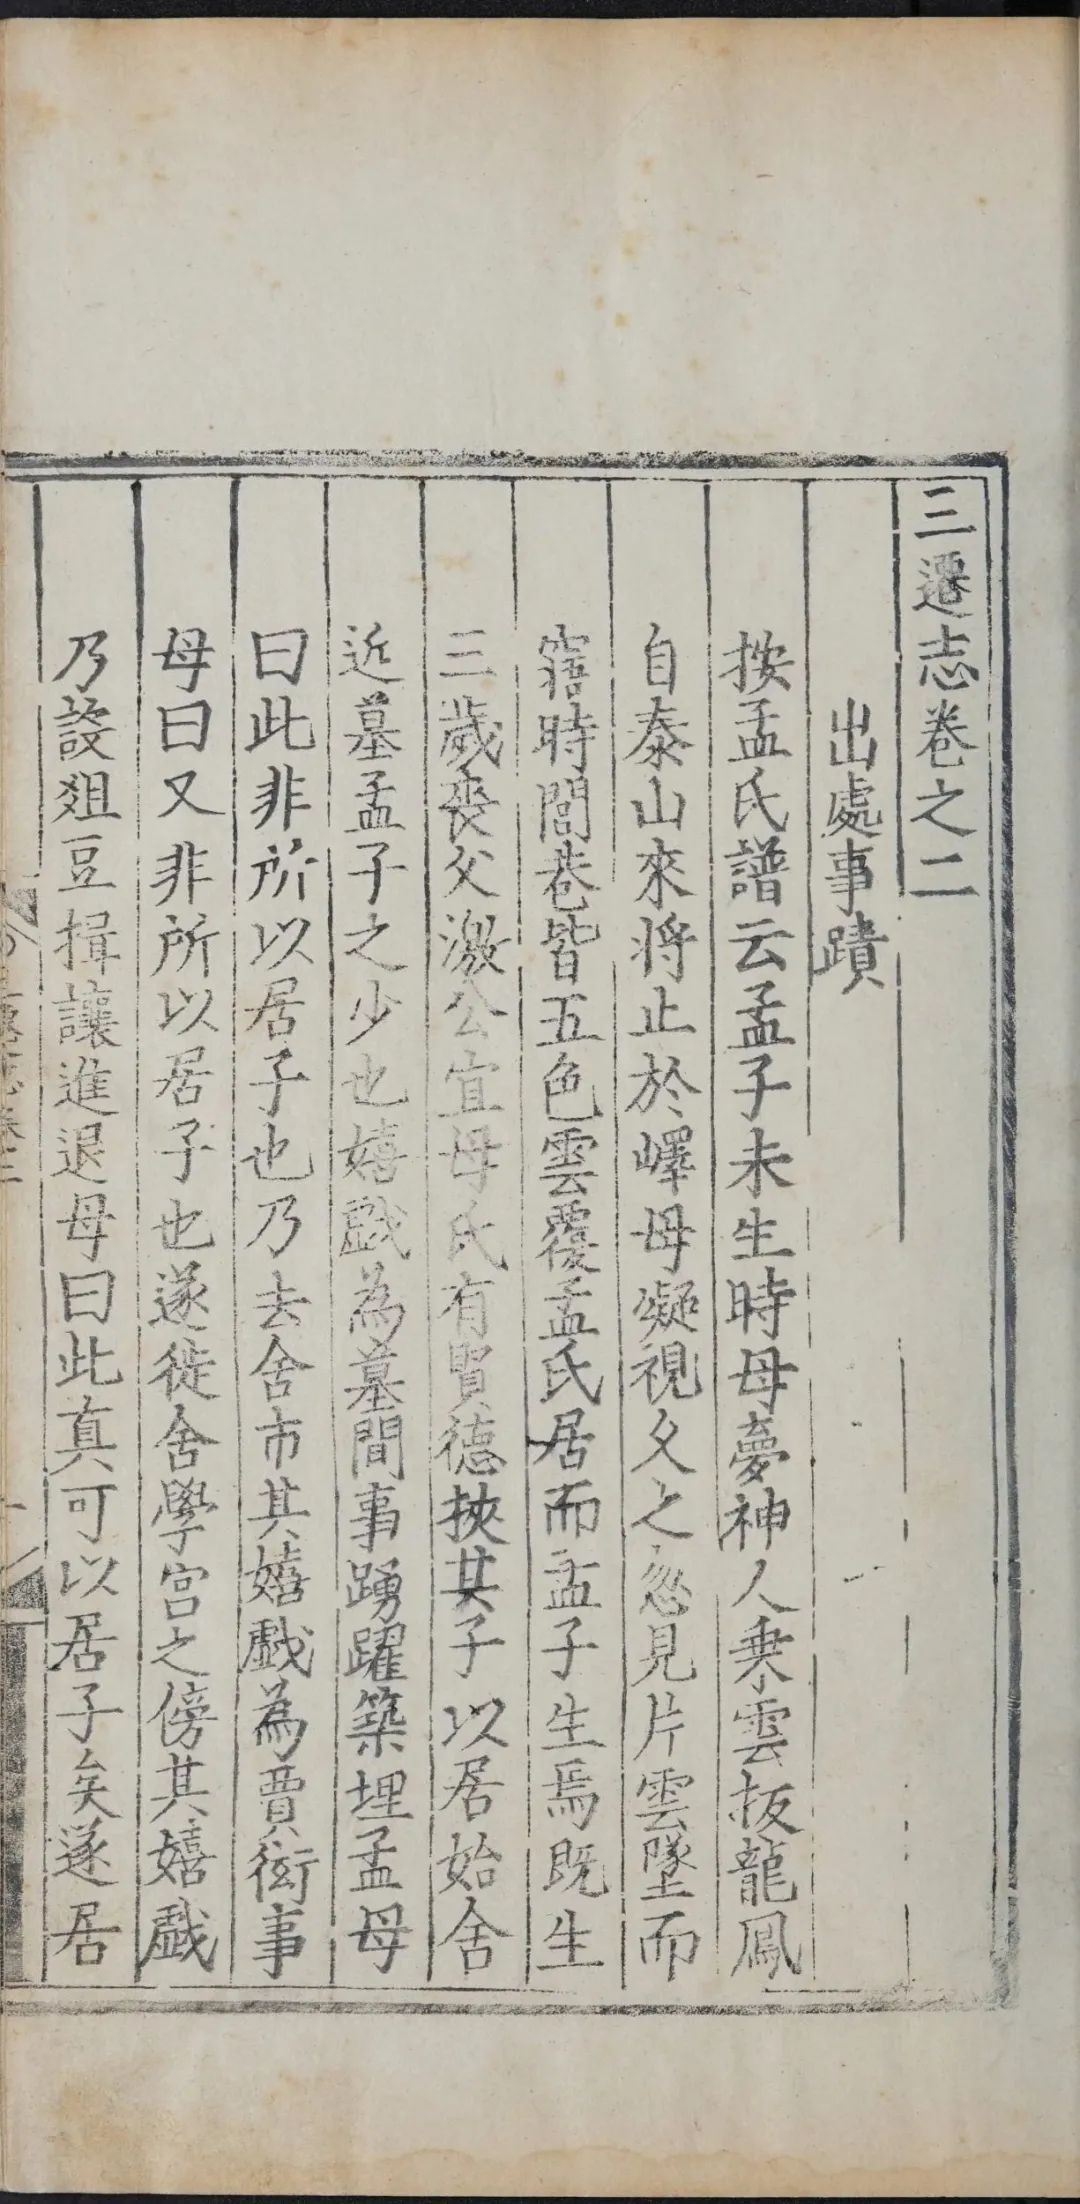 三遷志卷之二
出處事蹟
按孟氏譜云孟子未生時母夢神人乗雲扳龍鳳
自泰山來将止於嶧母凝視久之忽見片雲墜而
寤時閭巷皆五色雲覆孟氏居而孟子生焉既生
三歲丧父激公宜母氏有賢德挾其子以居始舍
近墓孟子之少也嬉戯為墓間事踴躍築埋孟母
曰此非所以居子也乃去舍市其嬉戯為賈衒事
母曰又非所以居子也遂徙舍學宫之傍其嬉戯
乃設俎豆揖讓進退母曰此真可以居子矣遂居